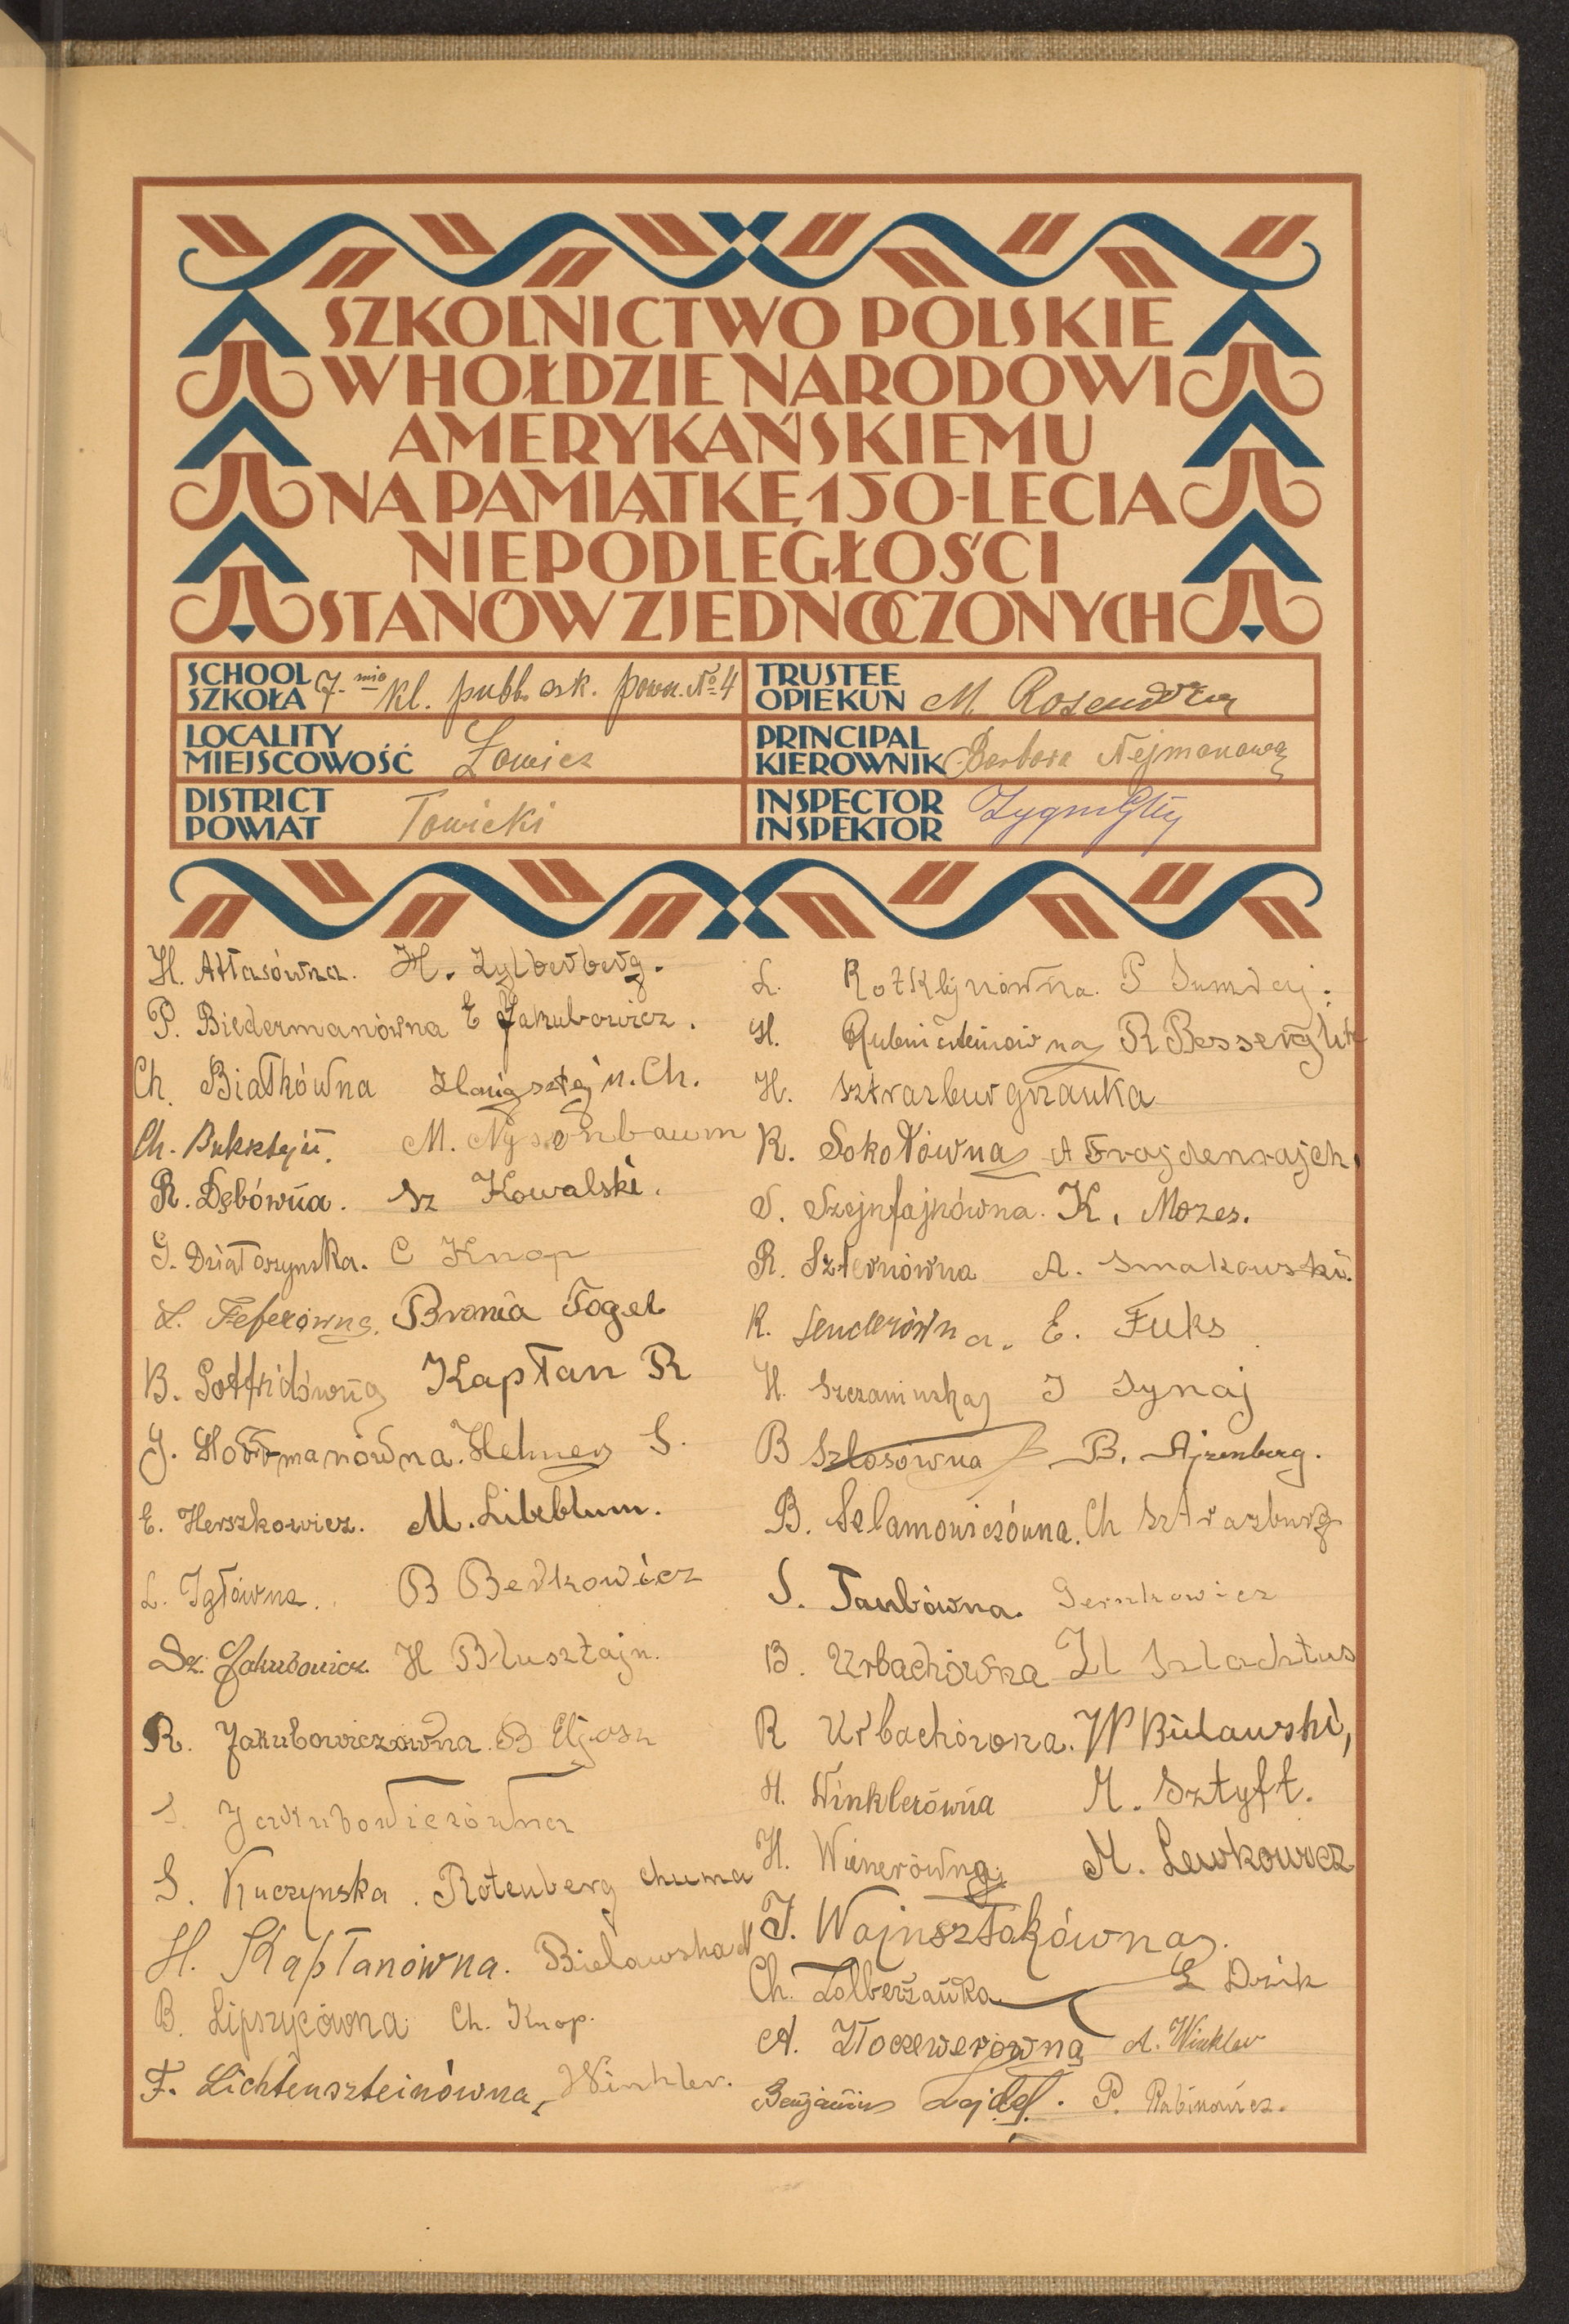 SZKOLNICTWO POLSKIE
W HOŁDZIE NARODOWI
AMERYKAŃSKIEMU
NA PAMIĄTKĘ 150-LECIA
NIEPODLEGŁOŚCI
STANÓW ZJEDNOCZONYCH
SCHOOL
SZKOŁA 7-mio kl. publ. szk. pow. № 4
TRUSTEE
OPIEKUN M.
LOCALITY
MIEJSCOWOŚĆ Łowicz
PRINCIPAL
KIEROWNIK Barbara Nejmanowa
DISTRICT
POWIAT Łowicki
INSPECTOR
INSPEKTOR
H. Atłasówna. H. Zylberberg.
P. Biedermanówna E Jakubowicz.
Ch. Białkówna Honigsztejn. Ch.
Ch. Буksztejn. M. Nysenbaum
R. Dębówna. Sz Kowalski.
G. Działoszynska. C Knop
L. Feferówna. Bronia Fogel
B. Gotfridówna Kapłan R
J. Hoffmanówna. Helmer S.
E. Herszkowicz. M. Libeblum.
L. Igłówna. B Berkowicz
Sz. Jakubowicz. H Blusztajn.
R. Jakubowiczówna. B Eljosz
S. Jakubowiczówna
S. Kuczynska. Rotenberg Chuma
H. Kapłanówna. Bielawska
B. Lipszycówna Ch. Knop.
F. Lichtenszteinówna, Winkler.
L. Rozklynówna. P
H. Rubinszteinówna R Besserglik
H. Sztrazburgrzanka
R. Sokołówna A Frajdenrajch,
S. Szejnfajnówna. K. Mozes.
R. Szternówna A. Smakowski.
R. Senderówna. E. Fuks
H. I Synaj
B Szlosówna B. Ajzenberg.
B. Selamowiczówna. Ch Sztrazburg
S. Taubówna. Gernkowicz
B. Urbachówna
R Urbachówna. W Bulawski,
H. Winklerówna M. Sztyft.
H. Wienerówna M. Lewkowicz
J. Wajnsztokówna.
Ch. Zolberżanka E Dzik
A. Złoczewerówna A. Winkler
Benjamin Zajdel. P. Rabinowicz.